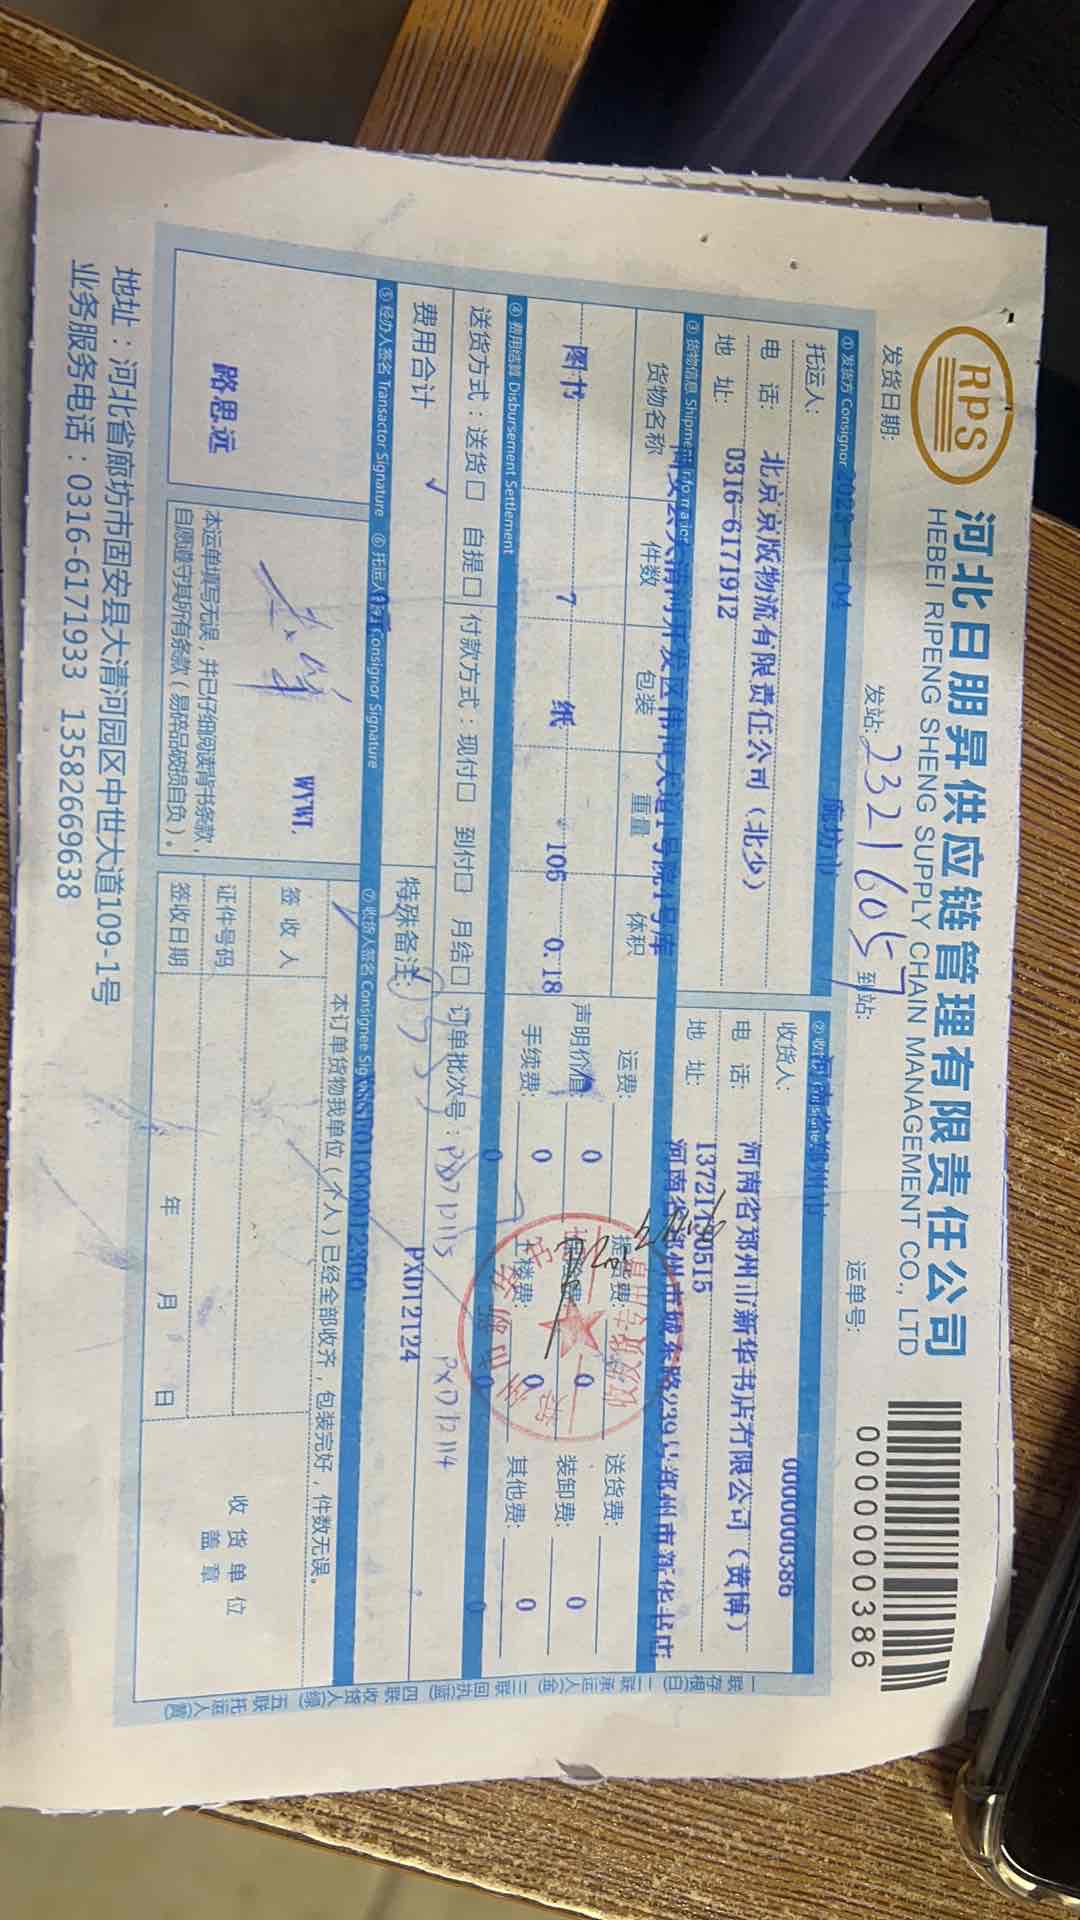 RPS
河北日朋昇供应链管理有限责任公司
HEBEI RIPENG SHENG SUPPLY CHAIN MANAGEMENT CO., LTD
0000000386
发货日期:
发站:
2321605
到站:
运单号:
① 发货方 Consignor
2023-11-04
廊坊市
0000000386
托运人:
北京京版物流有限责任公司（北少）
电 话:
0316-6171912
地 址:
收货人:
河南省郑州市新华书店有限公司（黄博）
电 话:
地 址:
③ 货物信息 Shipment Information
货物名称
件数
包装
重量
体积
图书
7
纸
105
0.18
运费:
提货费:
送货费:
声明价值:
0
保险费:
0
装卸费:
0
手续费:
0
上楼费:
0
其他费:
0
④ 费用结算 Disbursement Settlement
0
0
0
送货方式：送货□ 自提□
付款方式：现付□ 到付□ 月结□
订单批次号：
PXD12114
费用合计
√
特殊备注:
PXD12124
⑤ 经办人签名 Transactor Signature
⑥ 托运人签名 Consignor Signature
⑦ 收货人签名 Consignee
路思远
WYWL
本订单货物我单位（个人）已经全部收齐，包装完好，件数无误。
本运单填写无误，并已仔细阅读背书条款
自愿遵守其所有条款（易碎品破损自负）。
签 收 人
证件号码
签收日期
年 月 日
收 货 单 位
盖 章
地址：河北省廊坊市固安县大清河园区中世大道109-1号
业务服务电话：0316-6171933 13582669638
一联存根(白) 二联承运人(金) 三联回执(蓝) 四联收货人(绿) 五联托运人(黄)